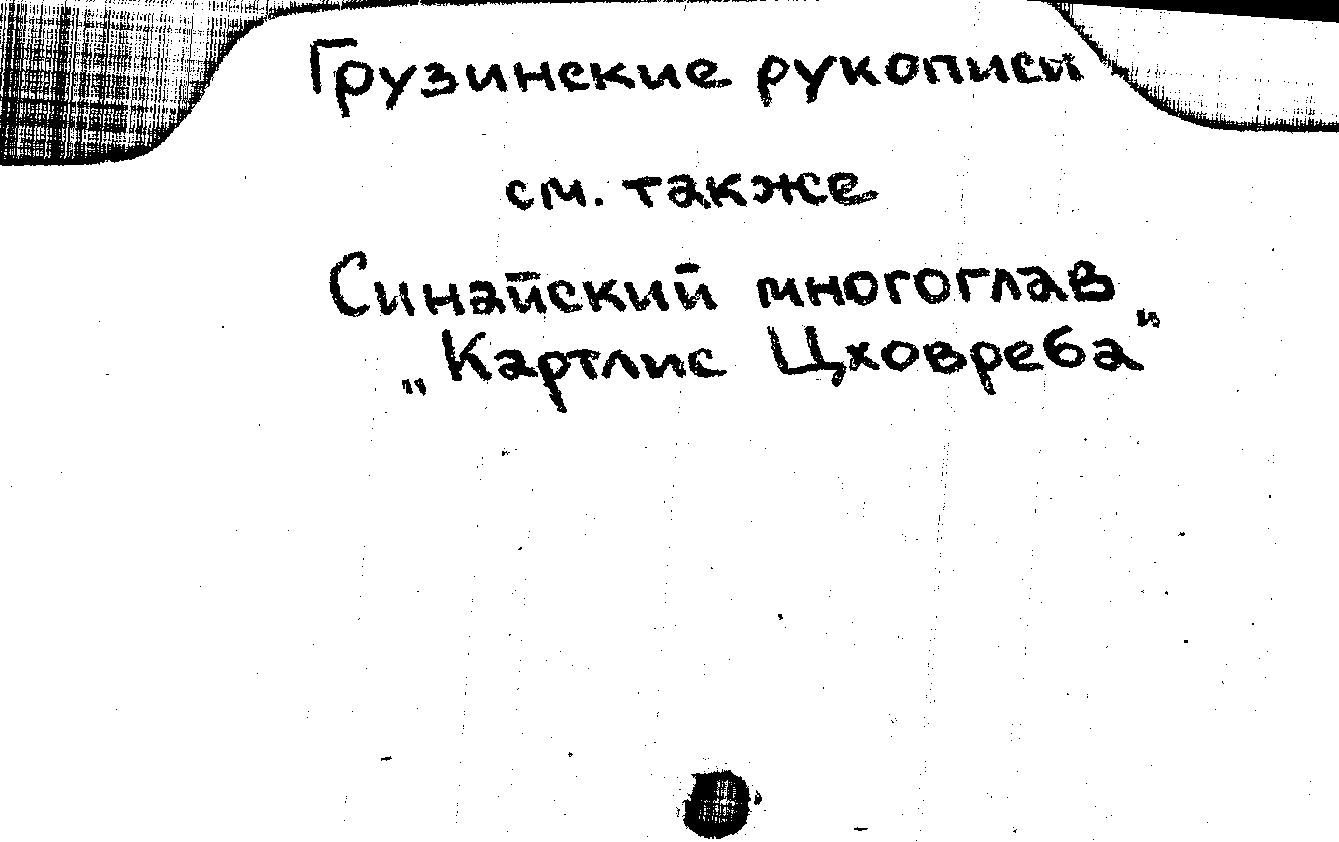 Грузинские рукописи
см. также
Синайский многоглав
„Картлис Цховреба"